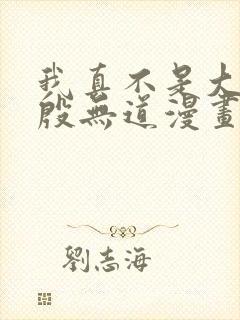 我真不是大
殷無道漫畫
劉志海